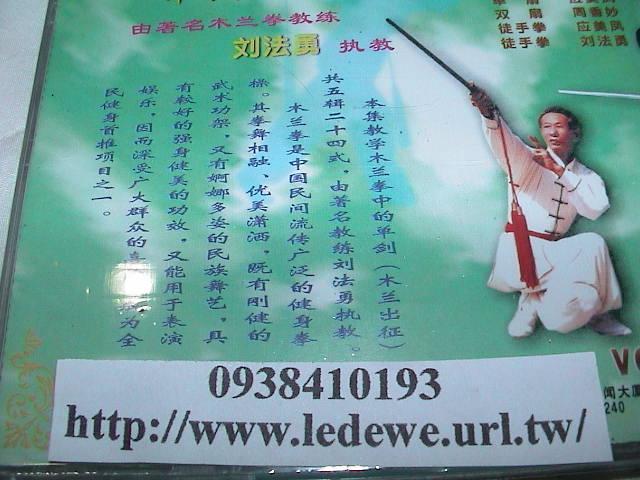 由著名木兰拳教练
刘法勇 执教
双扇 周香妙
徒手拳 应美凤
徒手拳 刘法勇
本集教学木兰拳中的单剑（木兰出征）
共五辑二十四式。由著名教练刘法勇执教。
木兰拳是中国民间流传广泛的健身拳
操。其拳舞相融、优美潇洒。既有刚健的
武术功架，又有婀娜多姿的民族舞艺。具
有较好的强身健美的功效。又能用于表演
娱乐。因而深受广大群众的喜 为全
民健身首推项目之一。
闻大厦
240
0938410193
http://www.ledewe.url.tw/